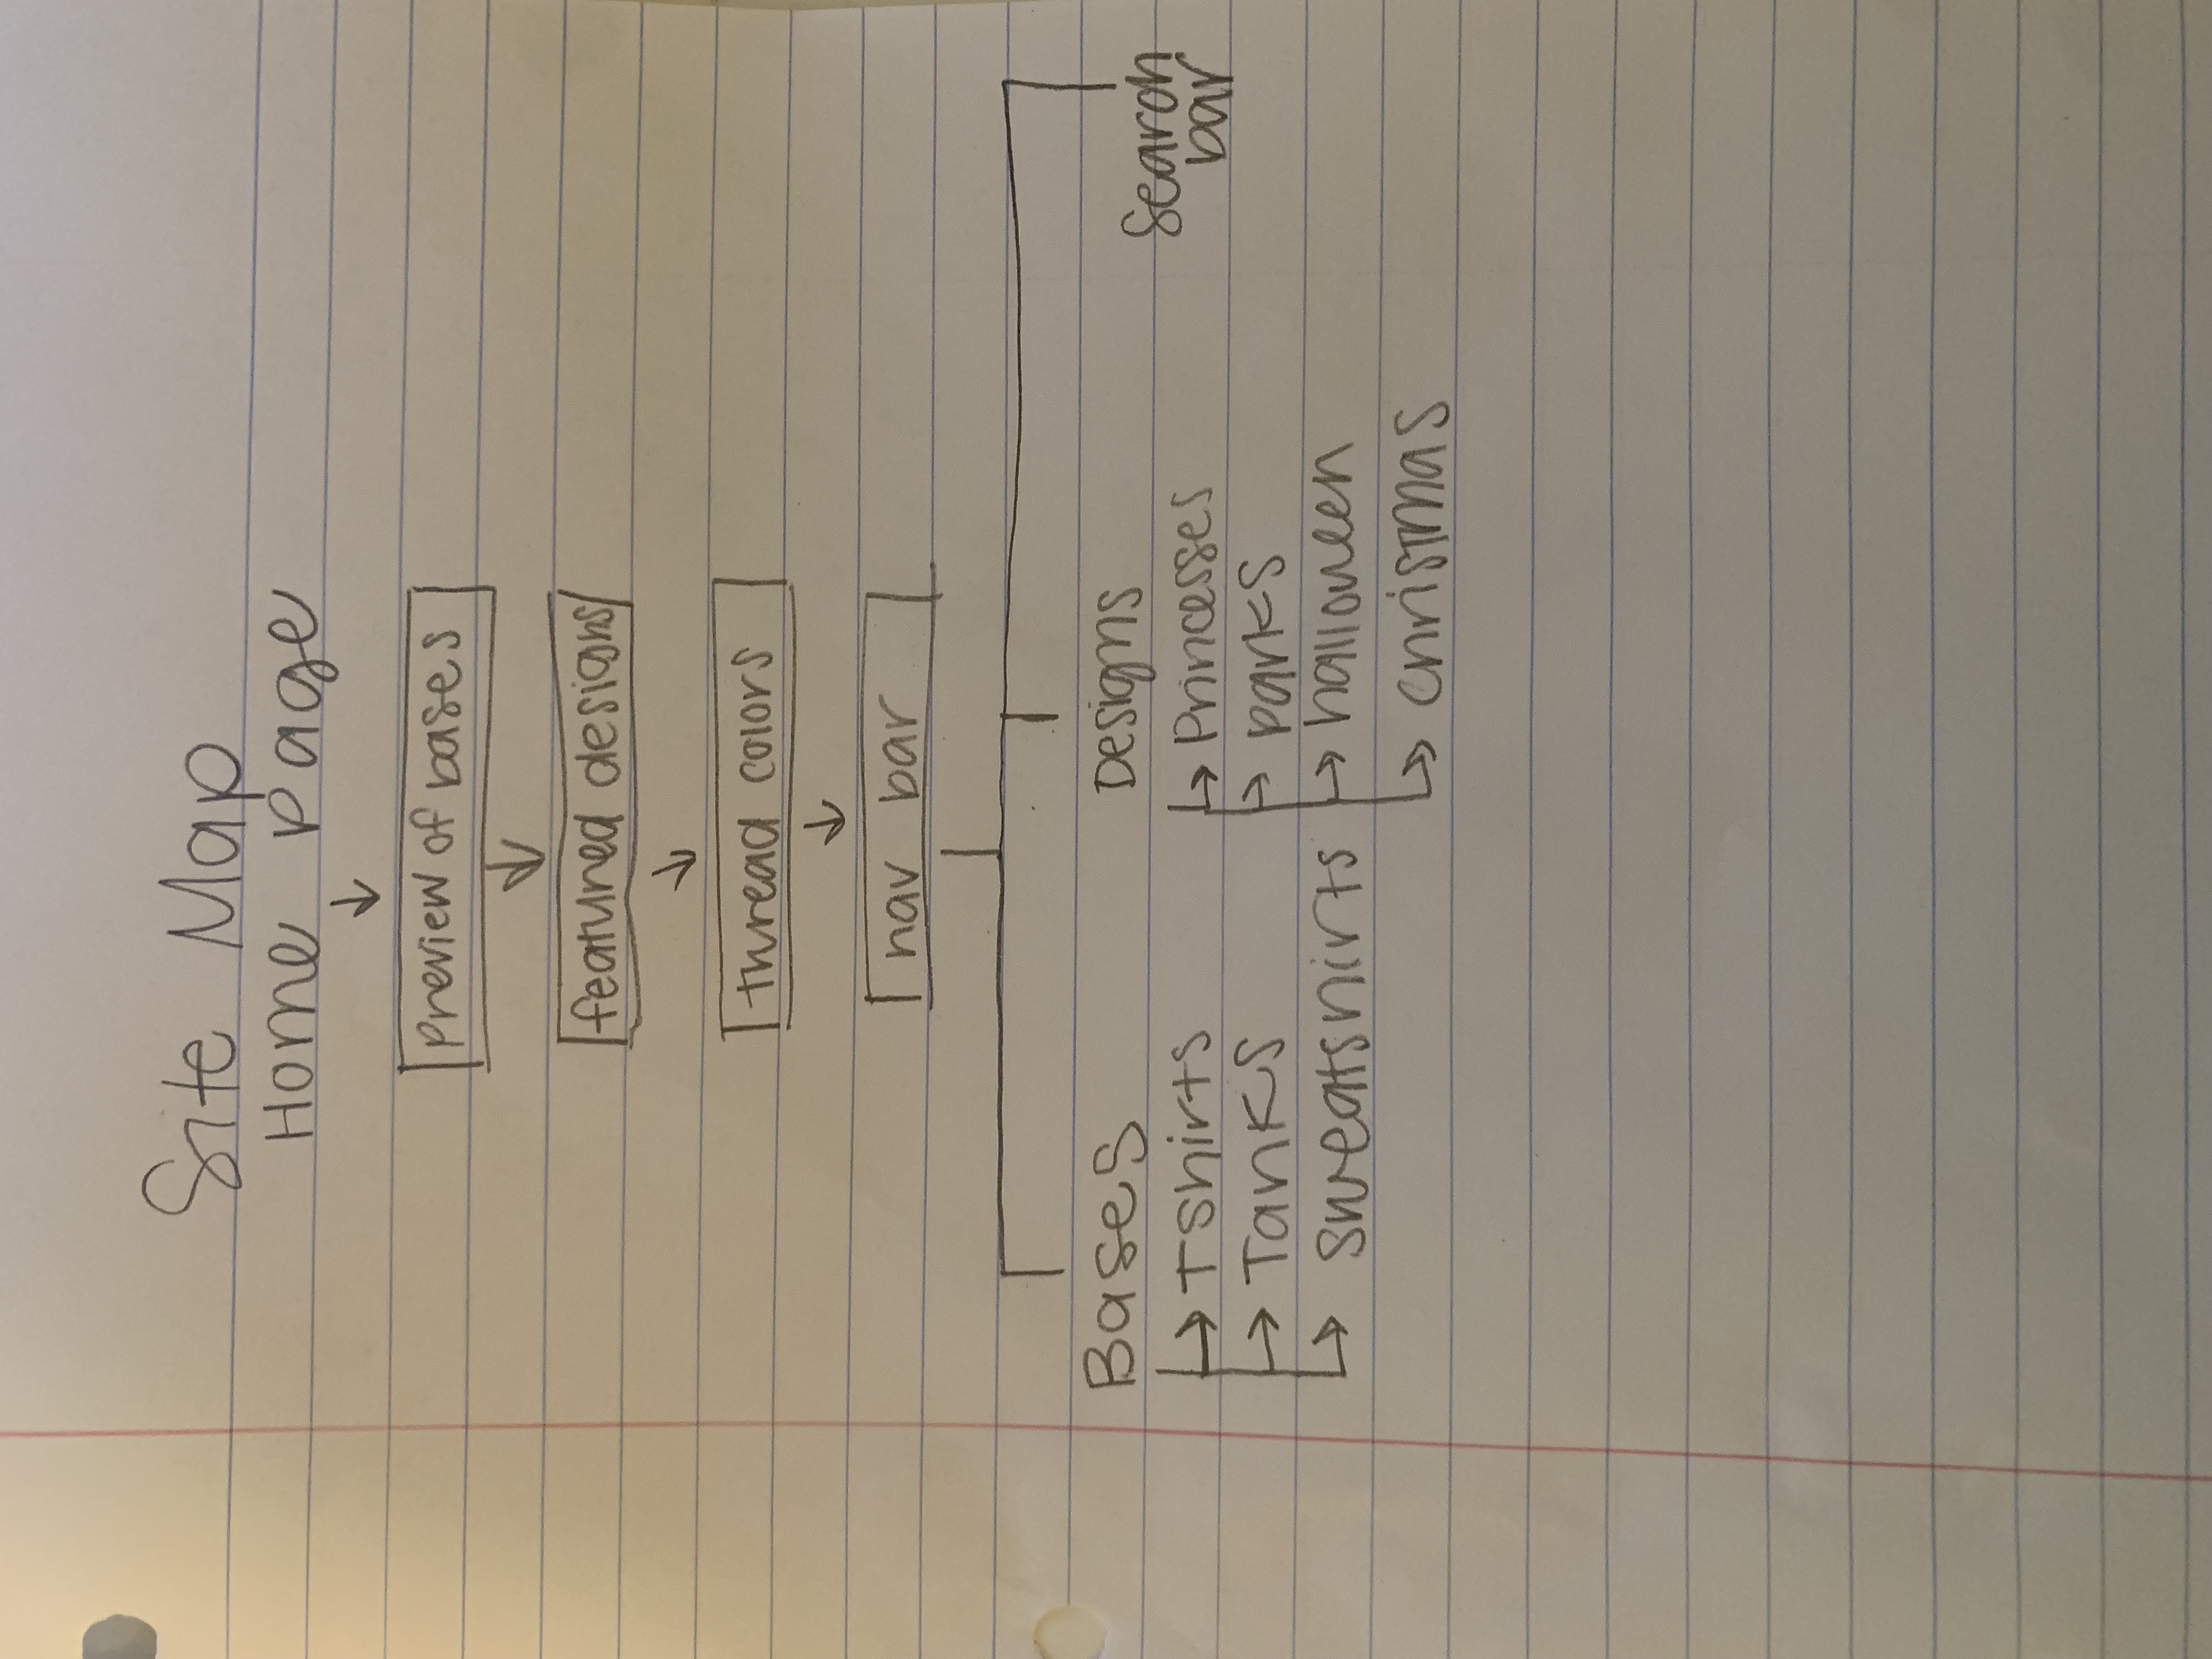 Site Map
Home page
preview of bases
featured designs
thread colors
nav bar
Bases
Tshirts
Tanks
sweatshirts
Designs
Princesses
parks
halloween
christmas
search
bar